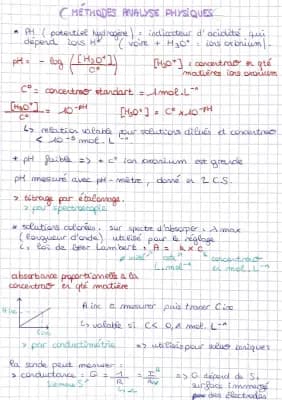 ( MÉTHODES ANALYSE PHYSIQUES
* PH (potentiel hydrogène) : indicateur d'acidité qui
dépend ions H⁺ (voire + H₃O⁺ : ions oxonium).
pH = - log ([H₃O⁺] / C°) [H₃O⁺] : concentrat° en qté
matières ions oxonium
C° = concentrat° standart = 1 mol.L⁻¹
[H₃O⁺] / C° = 10⁻ᵖᴴ [H₃O⁺] = C° × 10⁻ᵖᴴ
↳ relation valable pour solutions dilués et concentrat°
mol.L⁻¹
+ pH faible => + c° ion oxonium est grande
pH mesuré avec pH-mètre, donné en 2 C.S.
> titrage par étalonnage.
> par spectroscopie
* solutions colorées. sur spectre d'absorpt°, λ max
(longueur d'onde) utilisé pour le réglage
↳ loi de Beer Lambert, A = k × C
L.mol⁻¹ en mol.L⁻¹
absorbance proportionnelle à la
concentrat° en qté matière
A inc a mesurer puis tracer C inc
A inc
↳ valable si C <
C inc
> par conductimétrie => utilisé pour solut° ioniques
la sonde peut mesurer :
> conductance : G = 1/R = => G dépend de S :
surface immergé
des électrodes